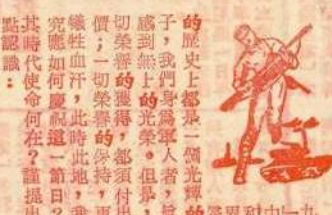 的歷史上都是一個光輝的
子，我們身為軍人者，
感到無上的光榮。但是，
切榮譽的獲得，都須付出
價；一切榮譽的保持，
犧牲血汗，此時此地，
究應如何慶祝這一節日？
其時代使命何在？謹提出
點認識：